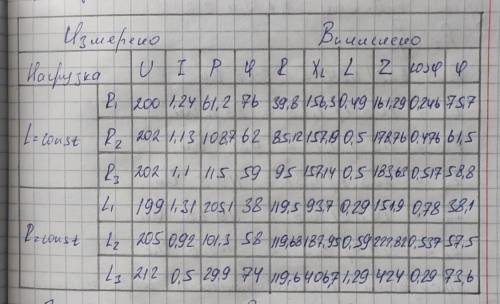 Измерено Вычислено
Нагрузка U I P φ R XL L Z cosφ φ
L=const R1 200 1,24 61,2 76 39,8 156,3 0,49 161,29 0,246 75,7
R2 202 1,13 108,7 62 85,12 157,19 0,5 178,76 0,476 61,5
R3 202 1,1 115 59 95 157,14 0,5 183,63 0,517 58,8
R=const L1 199 1,31 205,1 38 119,5 93,7 0,29 151,9 0,78 38,1
L2 205 0,92 101,3 58 119,68 187,95 0,59 222,82 0,537 57,5
L3 212 0,5 29,9 74 119,6 406,7 1,29 424 0,29 73,6